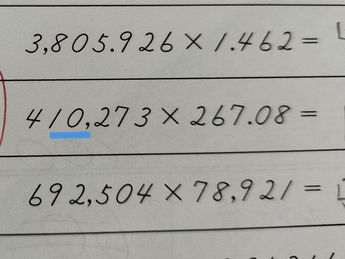 3,805.926 × 1.462 =
410,273 × 267.08 =
692,504 × 78,921 =